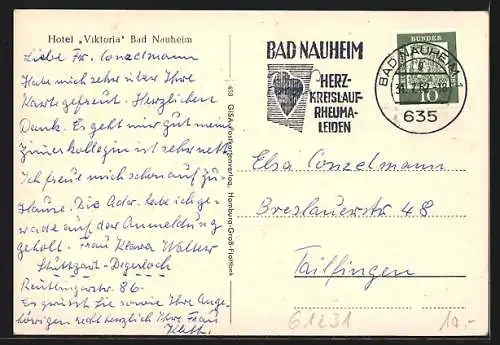 Hotel „Viktoria" Bad Nauheim
Liebe Fr. Conzelmann
Habe mich sehr über Ihre
Karte gefreut. Herzlichen
Dank. Es geht mir gut meine
Zimerkollegin ist sehr nett.
Ich freue mich schon auf zu-
Hause. Die Adr. habe ich ge-
rade auf der Anmeldung
geholt. Frau Klara Walter
Stuttgart-Degerloch
Reutlingerstr. 86.
Es grüsst Sie sowie Ihre Ange-
hörigen recht herzlich Ihre Frau
Kath.
GISA-Postkartenverlag, Hamburg-Groß-Flottbek
BAD NAUHEIM
HERZ-
KREISLAUF-
RHEUMA-
LEIDEN
DEUTSCHE BUNDESPOST
10
BAD NAUHEIM 1
635
Elsa Conzelmann
Breslauerstr. 48
Tailfingen
61231
10,-